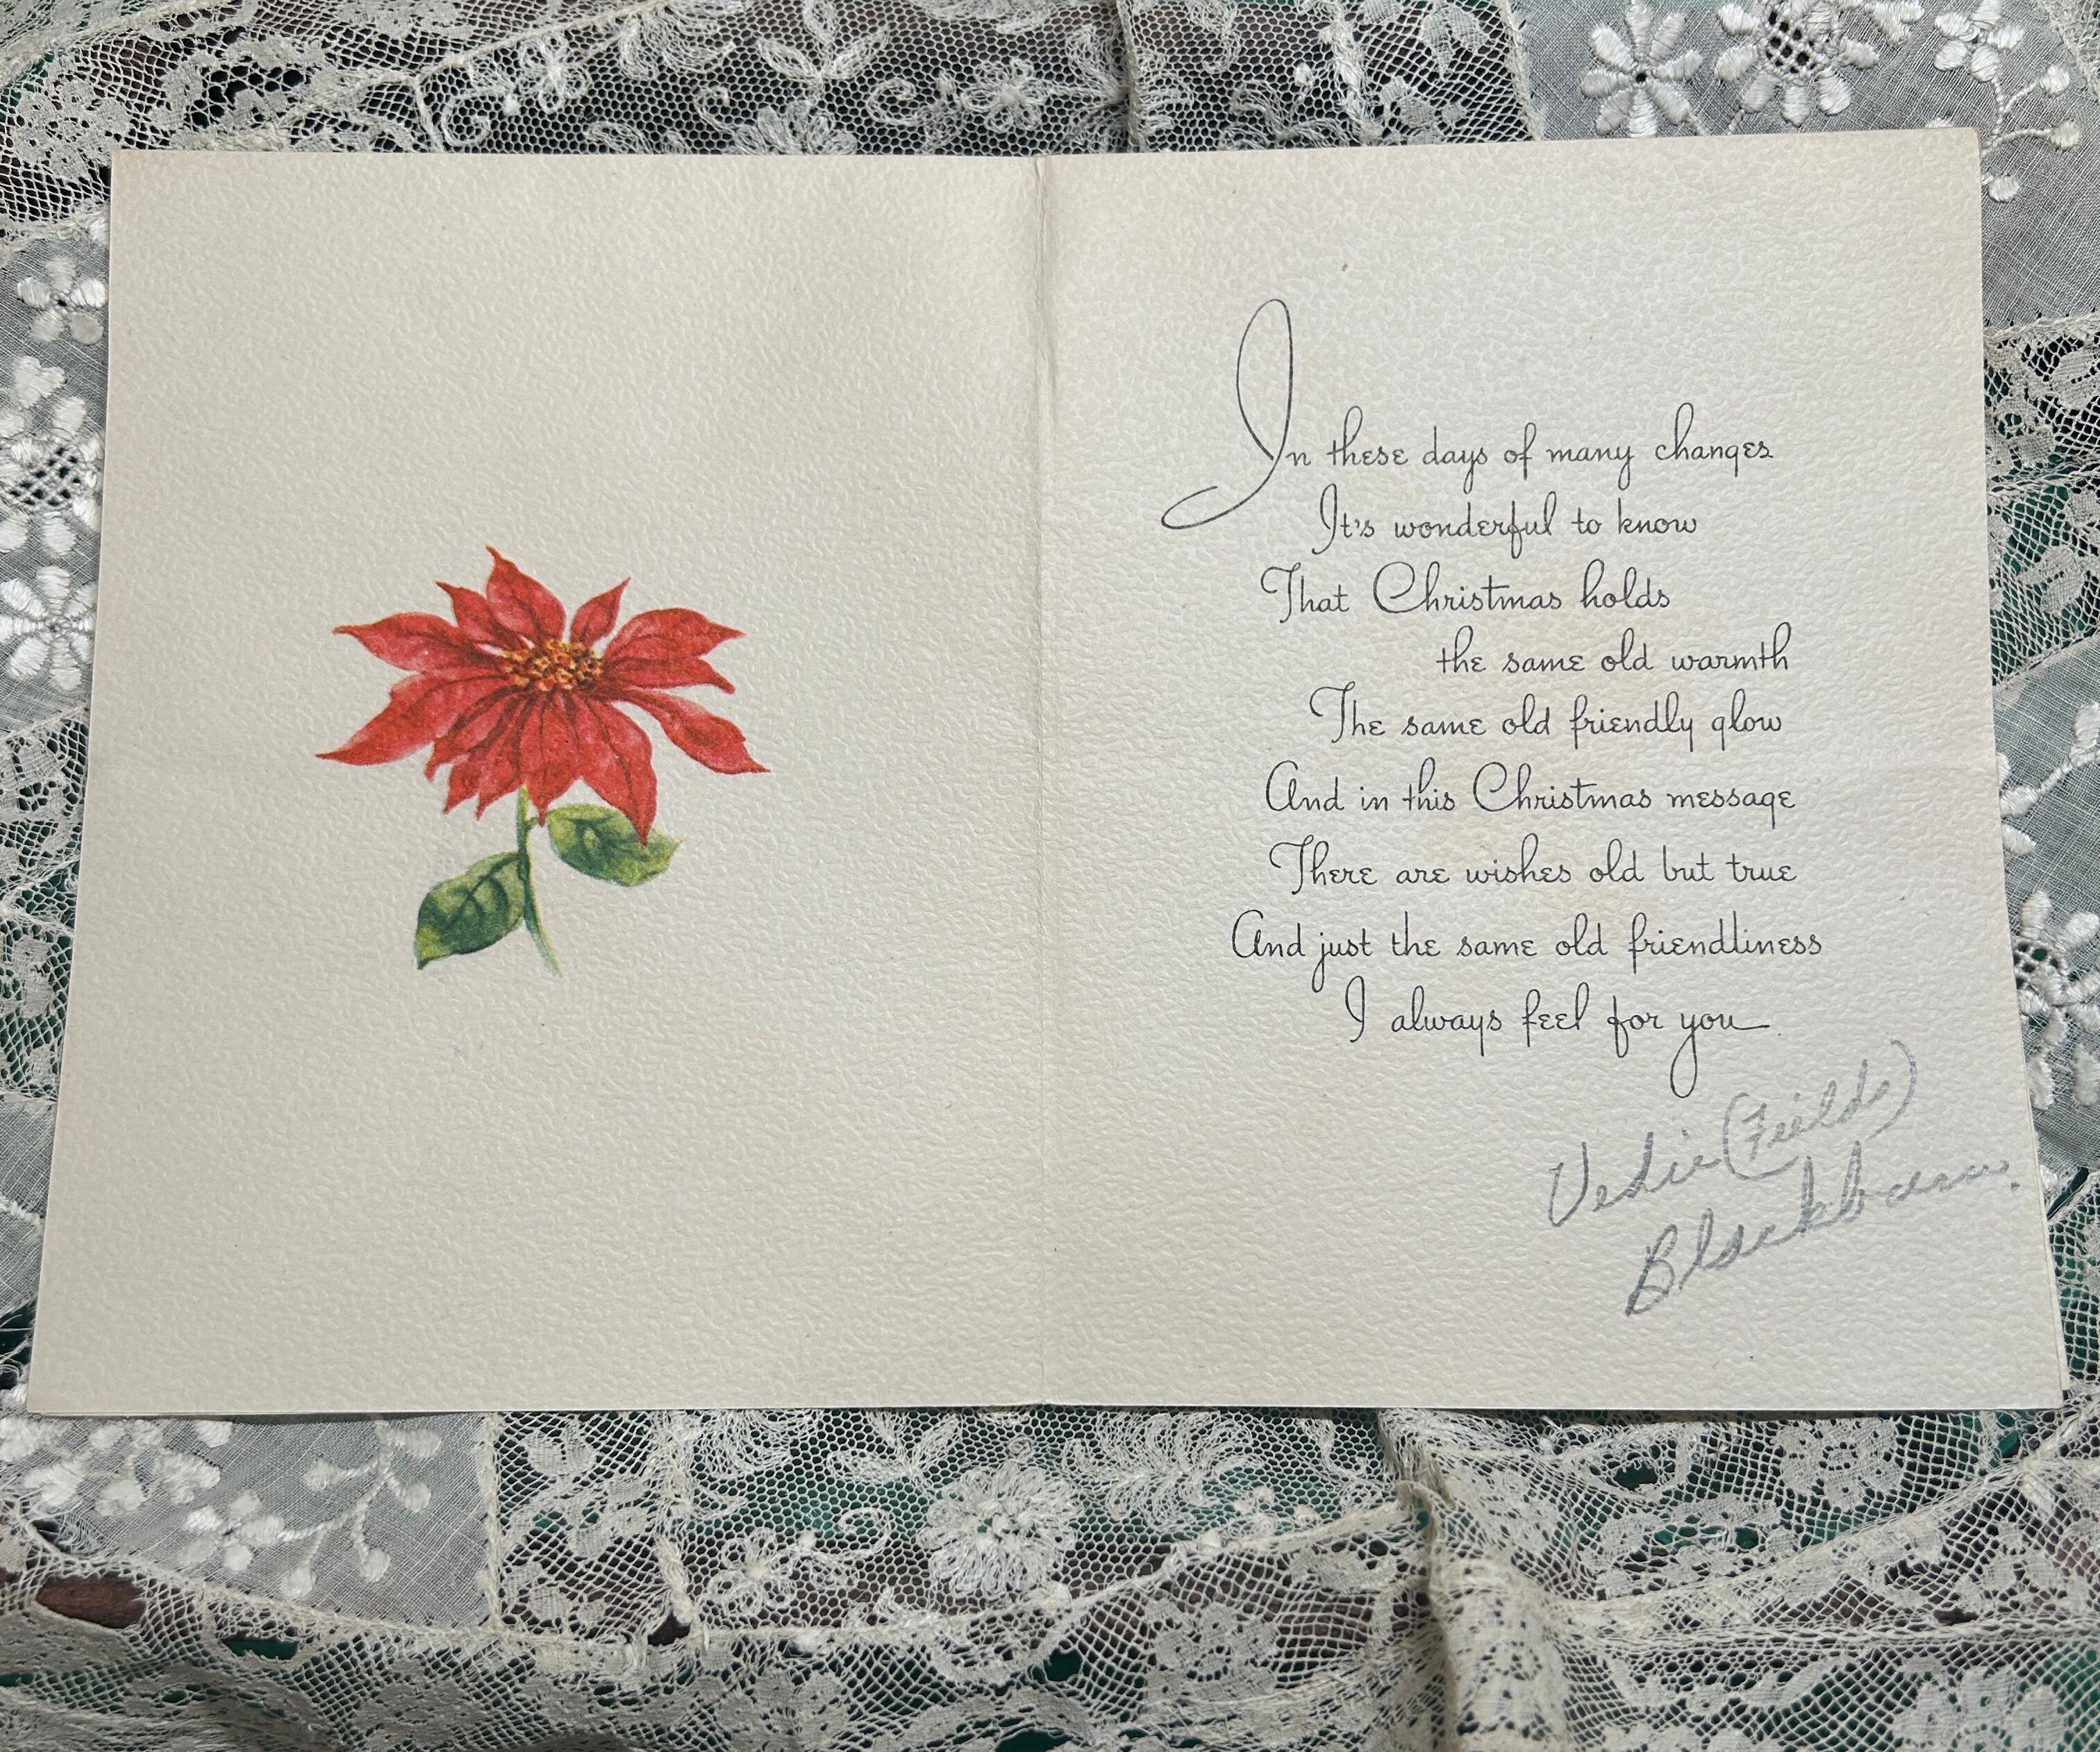 In these days of many changes
It's wonderful to know
That Christmas holds
the same old warmth
The same old friendly glow
And in this Christmas message
There are wishes old but true
And just the same old friendliness
I always feel for you
(Fields)